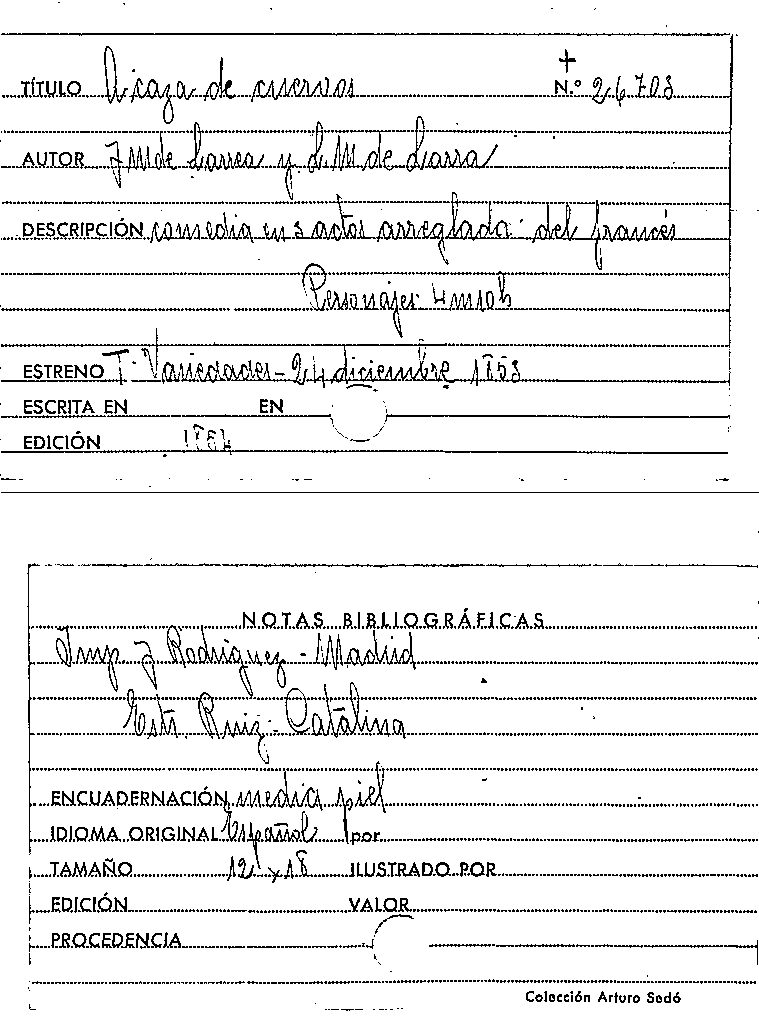 +
TÍTULO A caza de cuervos N.º 26708
AUTOR J M de Larrea y L. M. de Larra
DESCRIPCIÓN comedia en 3 actos arreglada del francés
Personajes 4 m 10 h
ESTRENO T. Variedades - 24 diciembre 1853
ESCRITA EN EN
EDICIÓN 1864
NOTAS BIBLIOGRÁFICAS
Imp J Rodriguez - Madrid
Estr. Ruiz - Catalina
ENCUADERNACIÓN media piel
IDIOMA ORIGINAL Español por
TAMAÑO 12 x 18 ILUSTRADO POR
EDICIÓN VALOR
PROCEDENCIA
Colección Arturo Sedó